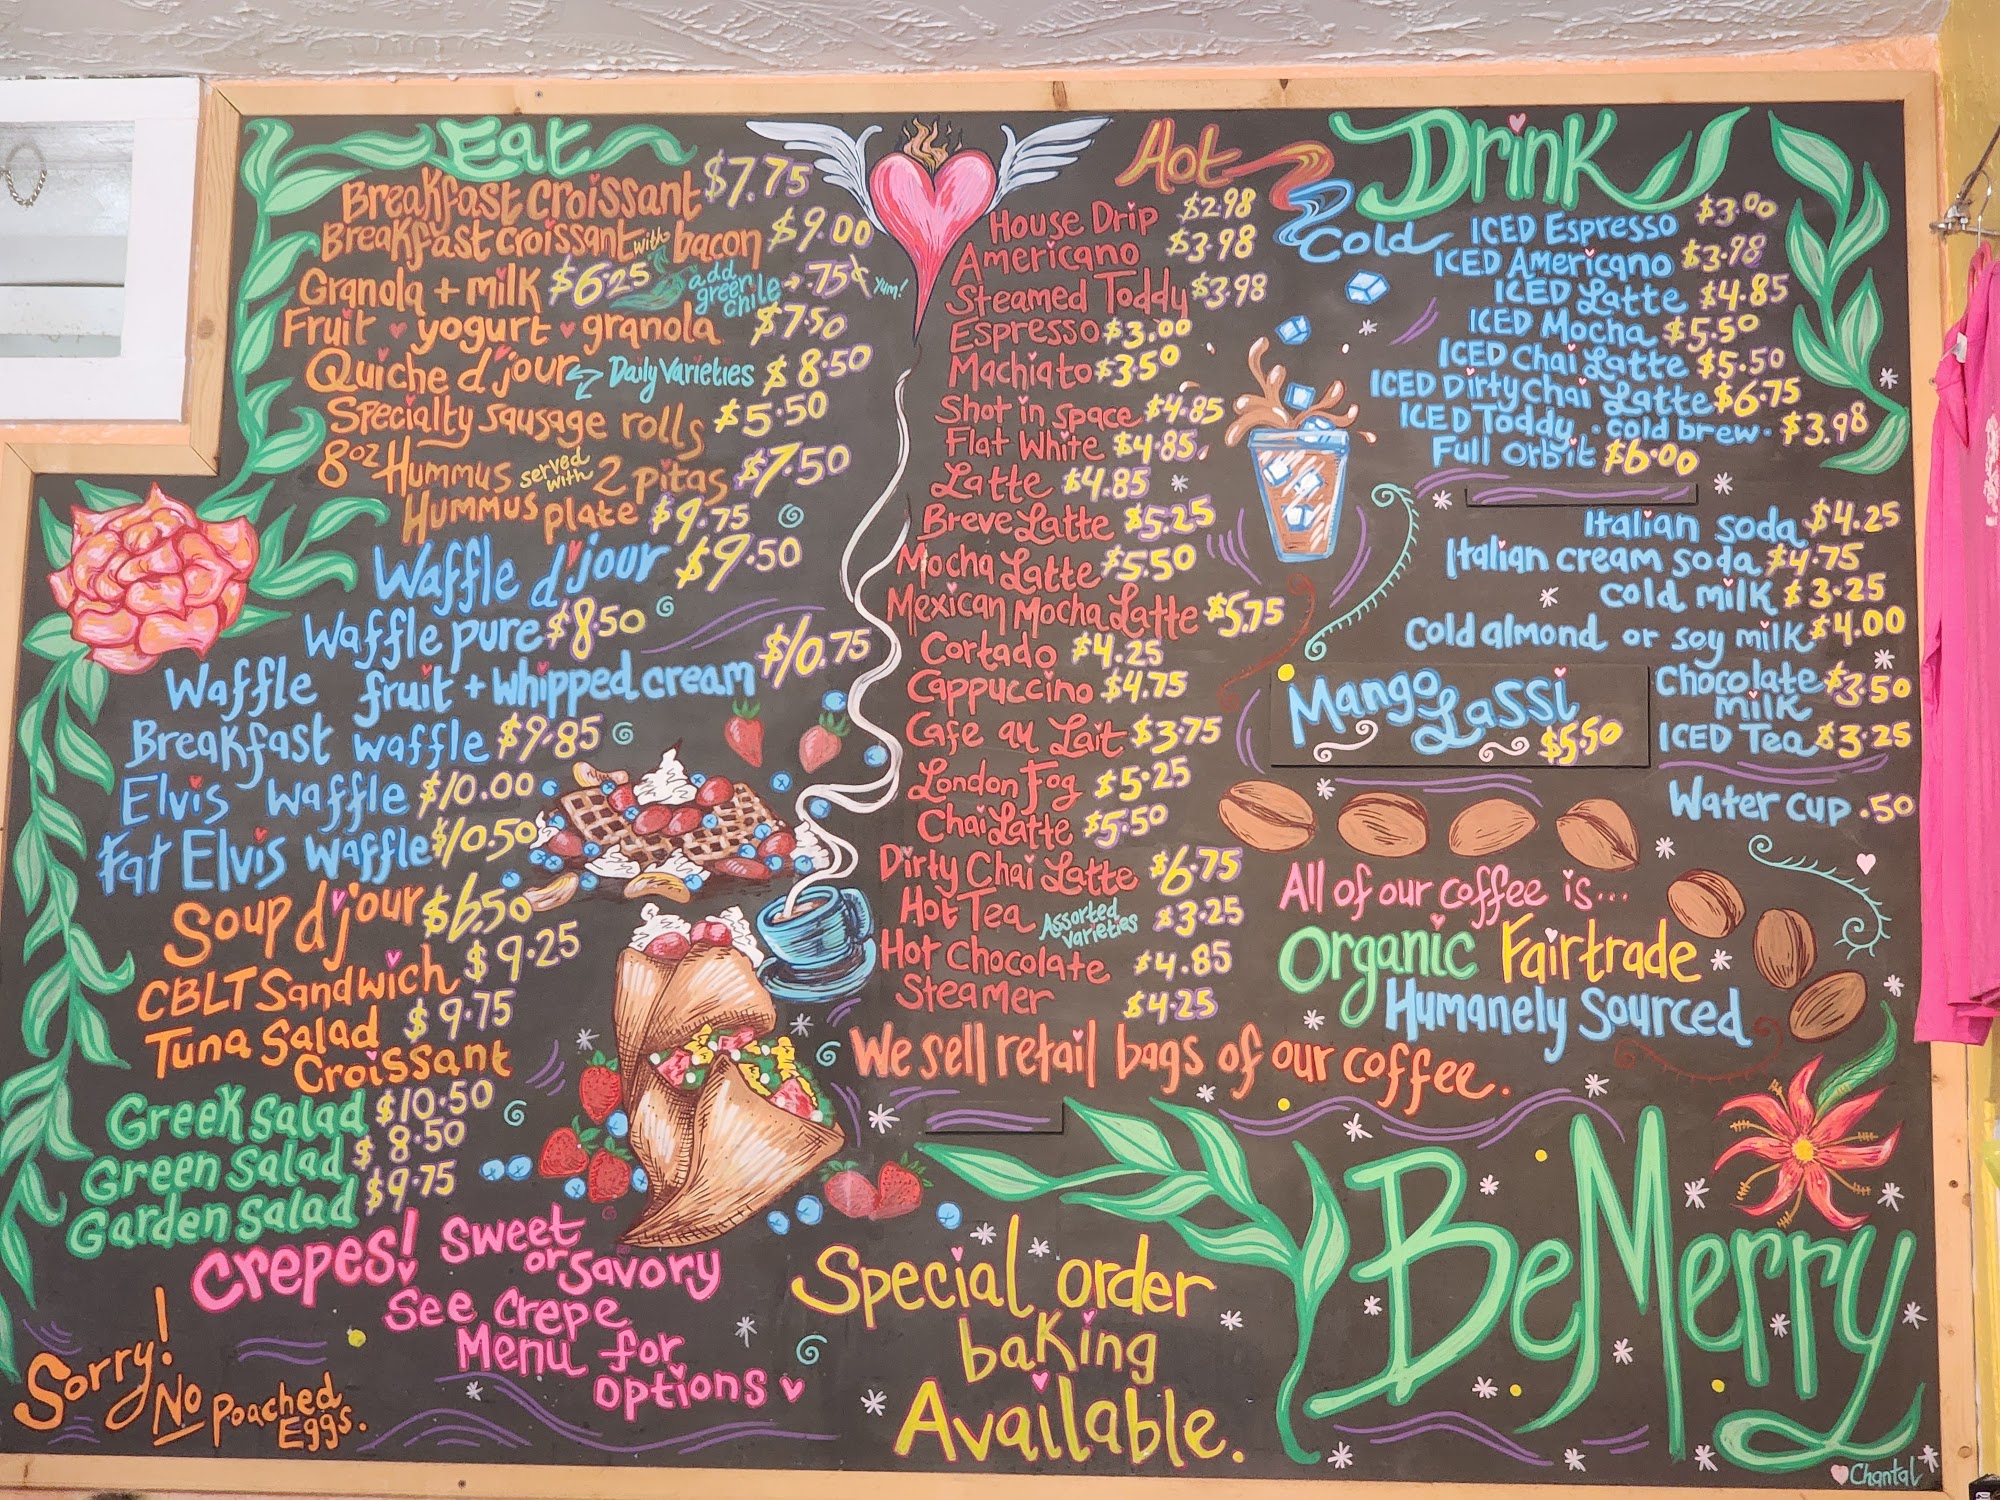 Eat
Breakfast Croissant $7.75
Breakfast croissant with bacon $9.00
Granola + milk $6.25
add green chile → .75¢ yum!
Fruit yogurt granola $7.50
Quiche d'jour Daily Varieties $8.50
Specialty sausage rolls $5.50
8oz Hummus served with 2 pitas $7.50
Hummus plate $9.75
Waffle d'jour $9.50
Waffle pure $8.50
Waffle fruit + whipped cream $10.75
Breakfast waffle $9.85
Elvis waffle $10.00
Fat Elvis waffle $10.50
Soup d'jour $6.50
CBLT Sandwich $9.25
Tuna Salad Croissant $9.75
Greek Salad $10.50
Green Salad $8.50
Garden Salad $9.75
Crepes! Sweet or Savory
See Crepe
Menu for
options
Sorry!
No Poached
Eggs.
Hot
House Drip $2.98
Americano $3.98
Steamed Toddy $3.98
Espresso $3.00
Machiato $3.50
Shot in space $4.85
Flat White $4.85
Latte $4.85
Breve Latte $5.25
Mocha Latte $5.50
Mexican Mocha Latte $5.75
Cortado $4.25
Cappuccino $4.75
Cafe au Lait $3.75
London Fog $5.25
Chai Latte $5.50
Dirty Chai Latte $6.75
Hot Tea Assorted varieties $3.25
Hot Chocolate $4.85
Steamer $4.25
We sell retail bags of our coffee.
Special order
baking
Available.
Drink
Cold
ICED Espresso $3.00
ICED Americano $3.98
ICED Latte $4.85
ICED Mocha $5.50
ICED Chai Latte $5.50
ICED Dirty Chai Latte $6.75
ICED Toddy · cold brew · $3.98
Full Orbit $6.00
Italian soda $4.25
Italian cream soda $4.75
cold milk $3.25
Cold almond or soy milk $4.00
Mango Lassi $5.50
Chocolate milk $3.50
ICED Tea $3.25
Water cup .50
All of our coffee is...
Organic Fairtrade
Humanely Sourced
Be Merry
Chantal